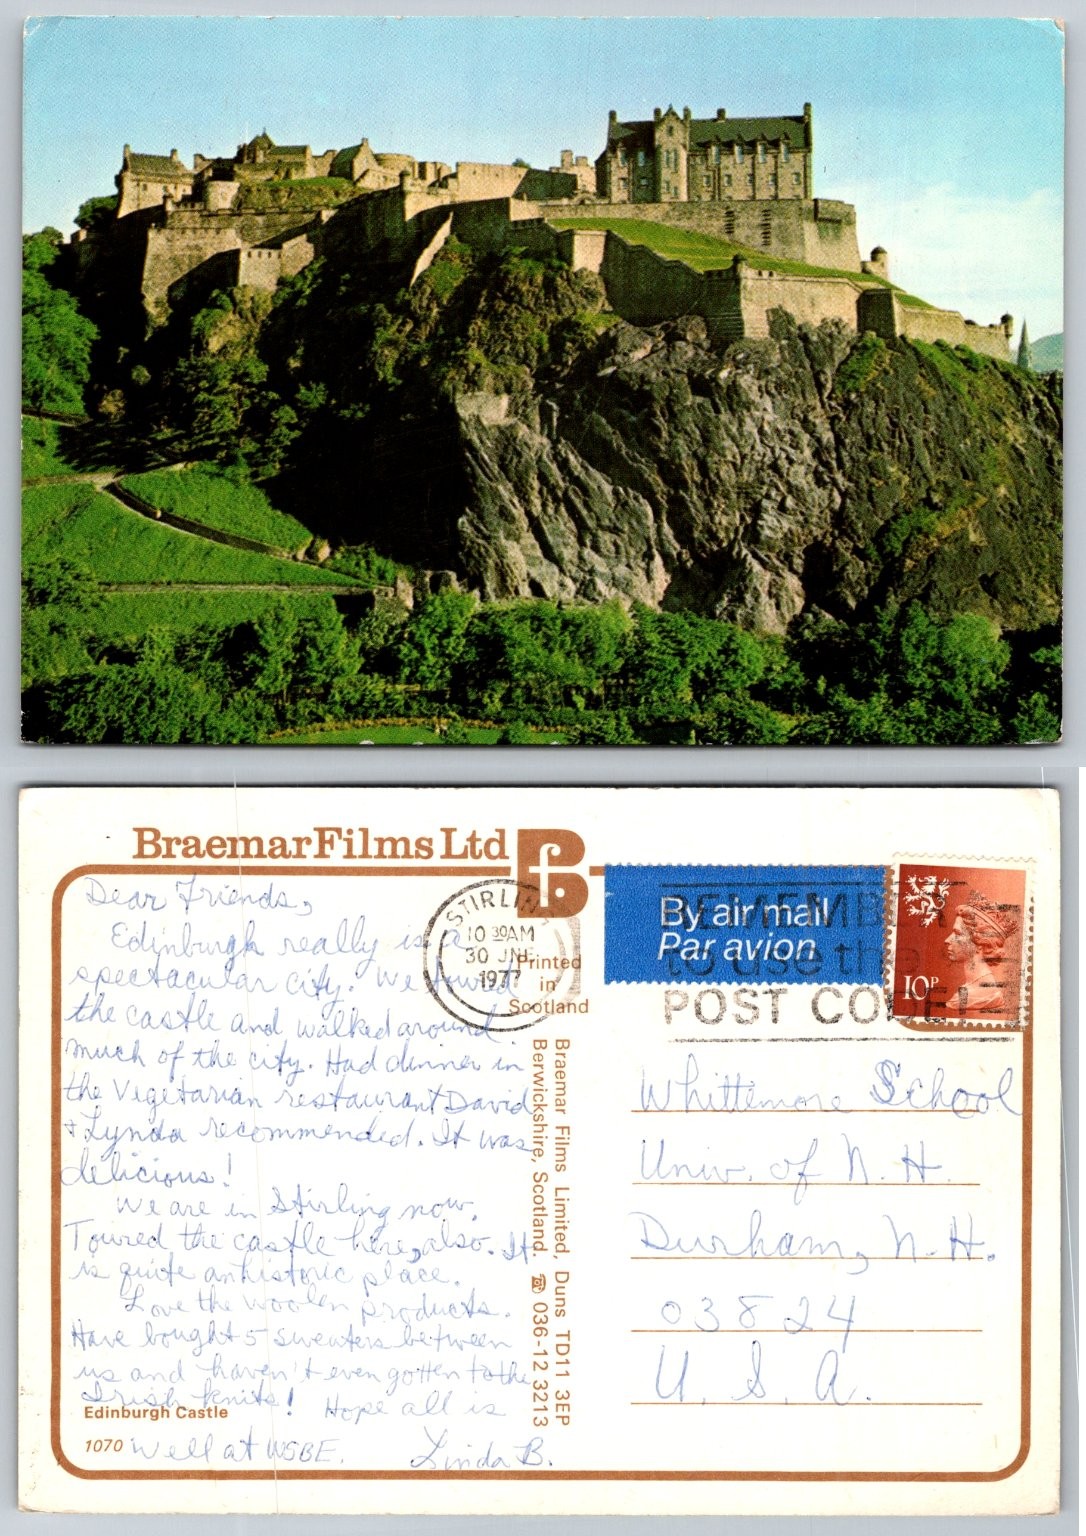 Braemar Films Ltd
Bf
Dear Friends,
Edinburgh really is a
spectacular city. We toured
the castle and walked around
much of the city. Had dinner in
the Vegetarian restaurant David
& Lynda recommended. It was
delicious!
We are in Stirling now.
Toured the castle here, also. It
is quite an historic place.
Love the woolen products.
Have bought 5 sweaters between
us and haven't even gotten to the
Irish knits! Hope all is
Edinburgh Castle
1070
well at WSBE.
Linda B.
STIRLING
10 30AM
30 JNE
1977
Printed
in
Scotland
Braemar Films Limited, Duns TD11 3EP
Berwickshire, Scotland. ☎ 036-12 3213
By air mail
Par avion
REMEMBER
to use the
POST CODE
10P
Whittemore School
Univ. of N. H.
Durham, N. H.
03824
U. S. A.